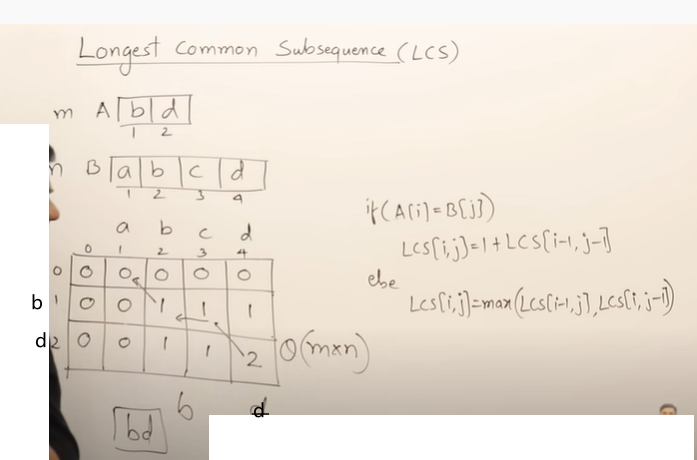 Longest Common Subsequence (LCS)
m A b d
1 2
n B a b c d
1 2 3 4
a b c d
0 1 2 3 4
0 0 0 0 0 0
b 1 0 0 1 1 1
d 2 0 0 1 1 2
θ(m×n)
b d
bd
if(A[i]=B[j])
LCS[i,j]=1+LCS[i-1,j-1]
else
LCS[i,j]=max(LCS[i-1,j],LCS[i,j-1])